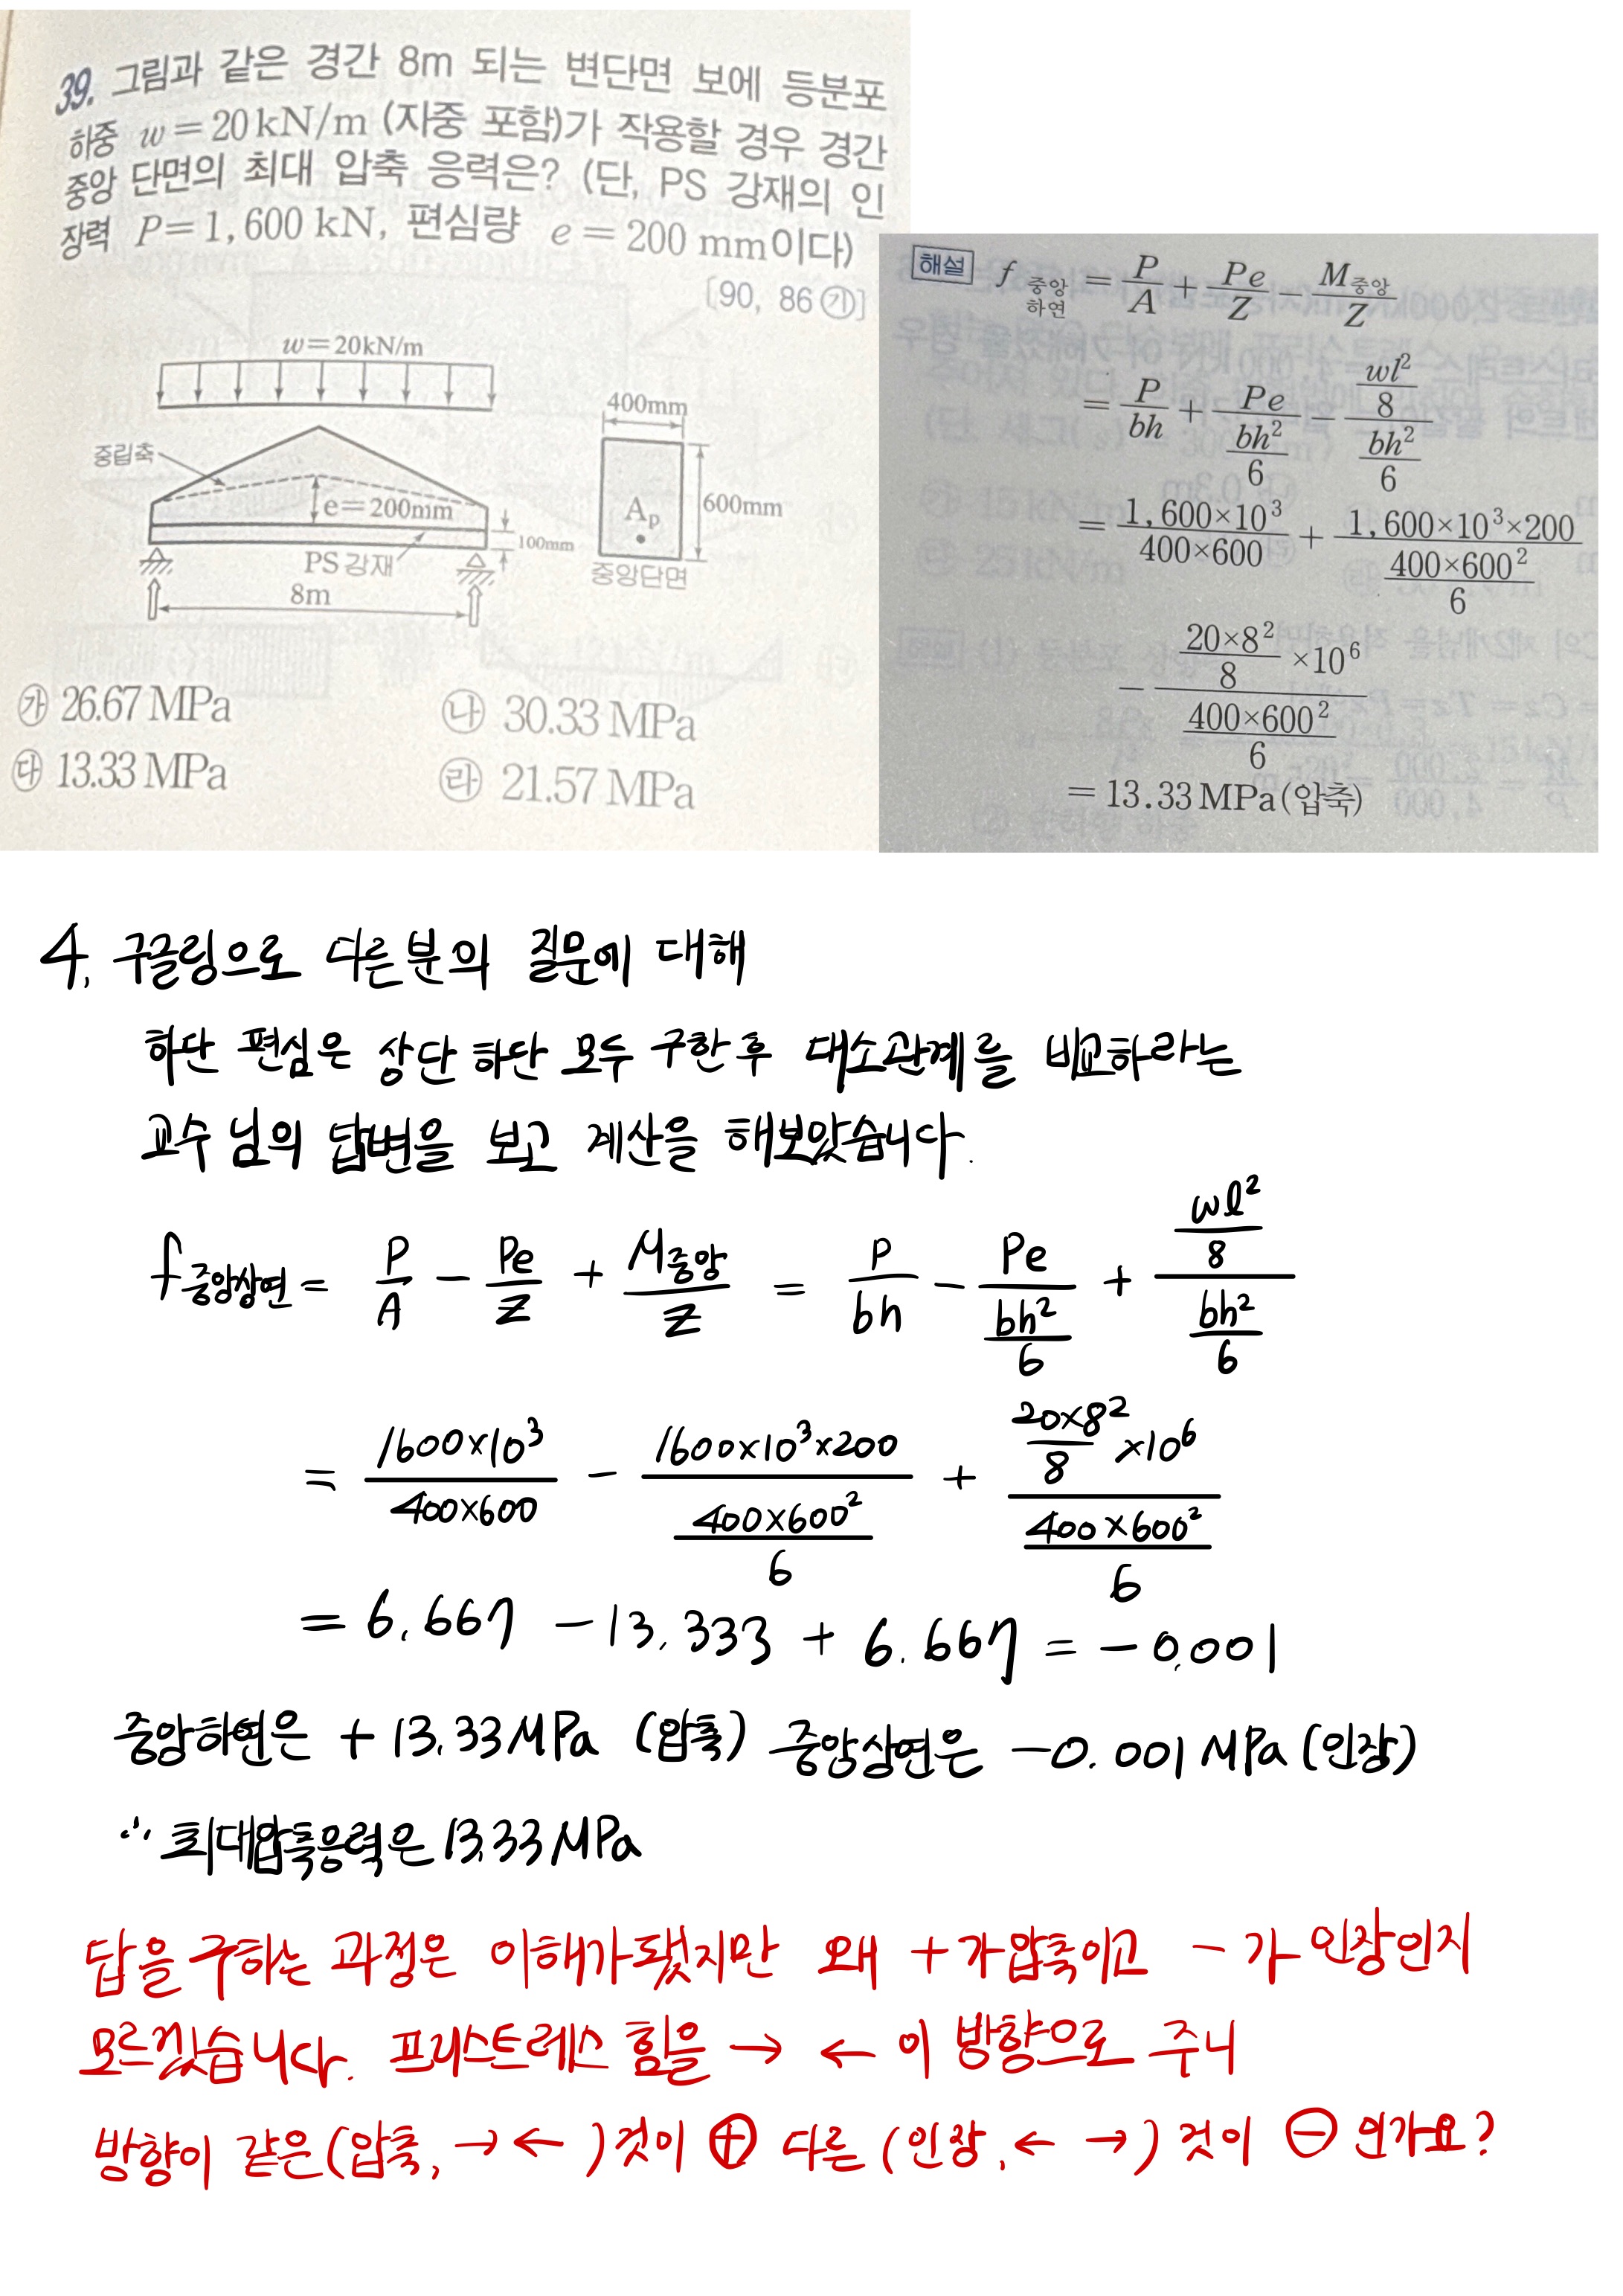 39. 그림과 같은 경간 8m 되는 변단면 보에 등분포
하중 w=20kN/m (자중 포함)가 작용할 경우 경간
중앙 단면의 최대 압축 응력은? (단, PS 강재의 인
장력 P=1,600 kN, 편심량 e=200 mm이다)
[90, 86 ㉮]
w=20kN/m
중립축
e=200mm
PS 강재
100mm
8m
400mm
Ap
600mm
중앙단면
㉮ 26.67 MPa
㉯ 30.33 MPa
㉰ 13.33 MPa
㉱ 21.57 MPa
해설 f 중앙 하연 = P/A + Pe/Z - M중앙/Z
= P/bh + Pe/(bh²/6) - (wl²/8)/(bh²/6)
= 1,600×10³/400×600 + 1,600×10³×200/(400×600²/6)
- (20×8²/8 ×10⁶)/(400×600²/6)
= 13.33 MPa(압축)
4. 구글링으로 다른분의 질문에 대해
하단 편심은 상단 하단 모두 구한 후 대소관계를 비교하라는
교수님의 답변을 보고 계산을 해보았습니다.
f중앙상연 = P/A - Pe/Z + M중앙/Z = P/bh - Pe/(bh²/6) + (wl²/8)/(bh²/6)
= 1600×10³/400×600 - 1600×10³×200/(400×600²/6) + (20×8²/8 ×10⁶)/(400×600²/6)
= 6.667 - 13.333 + 6.667 = -0.001
중앙하연은 +13.33MPa (압축) 중앙상연은 -0.001 MPa (인장)
∴ 최대압축응력은 13.33MPa
답을 구하는 과정은 이해가 됐지만 왜 +가 압축이고 -가 인장인지
모르겠습니다. 프리스트레스 힘을 → ← 이 방향으로 주니
방향이 같은(압축, → ← )것이 ⊕ 다른 (인장, ← → ) 것이 ⊖ 인가요?